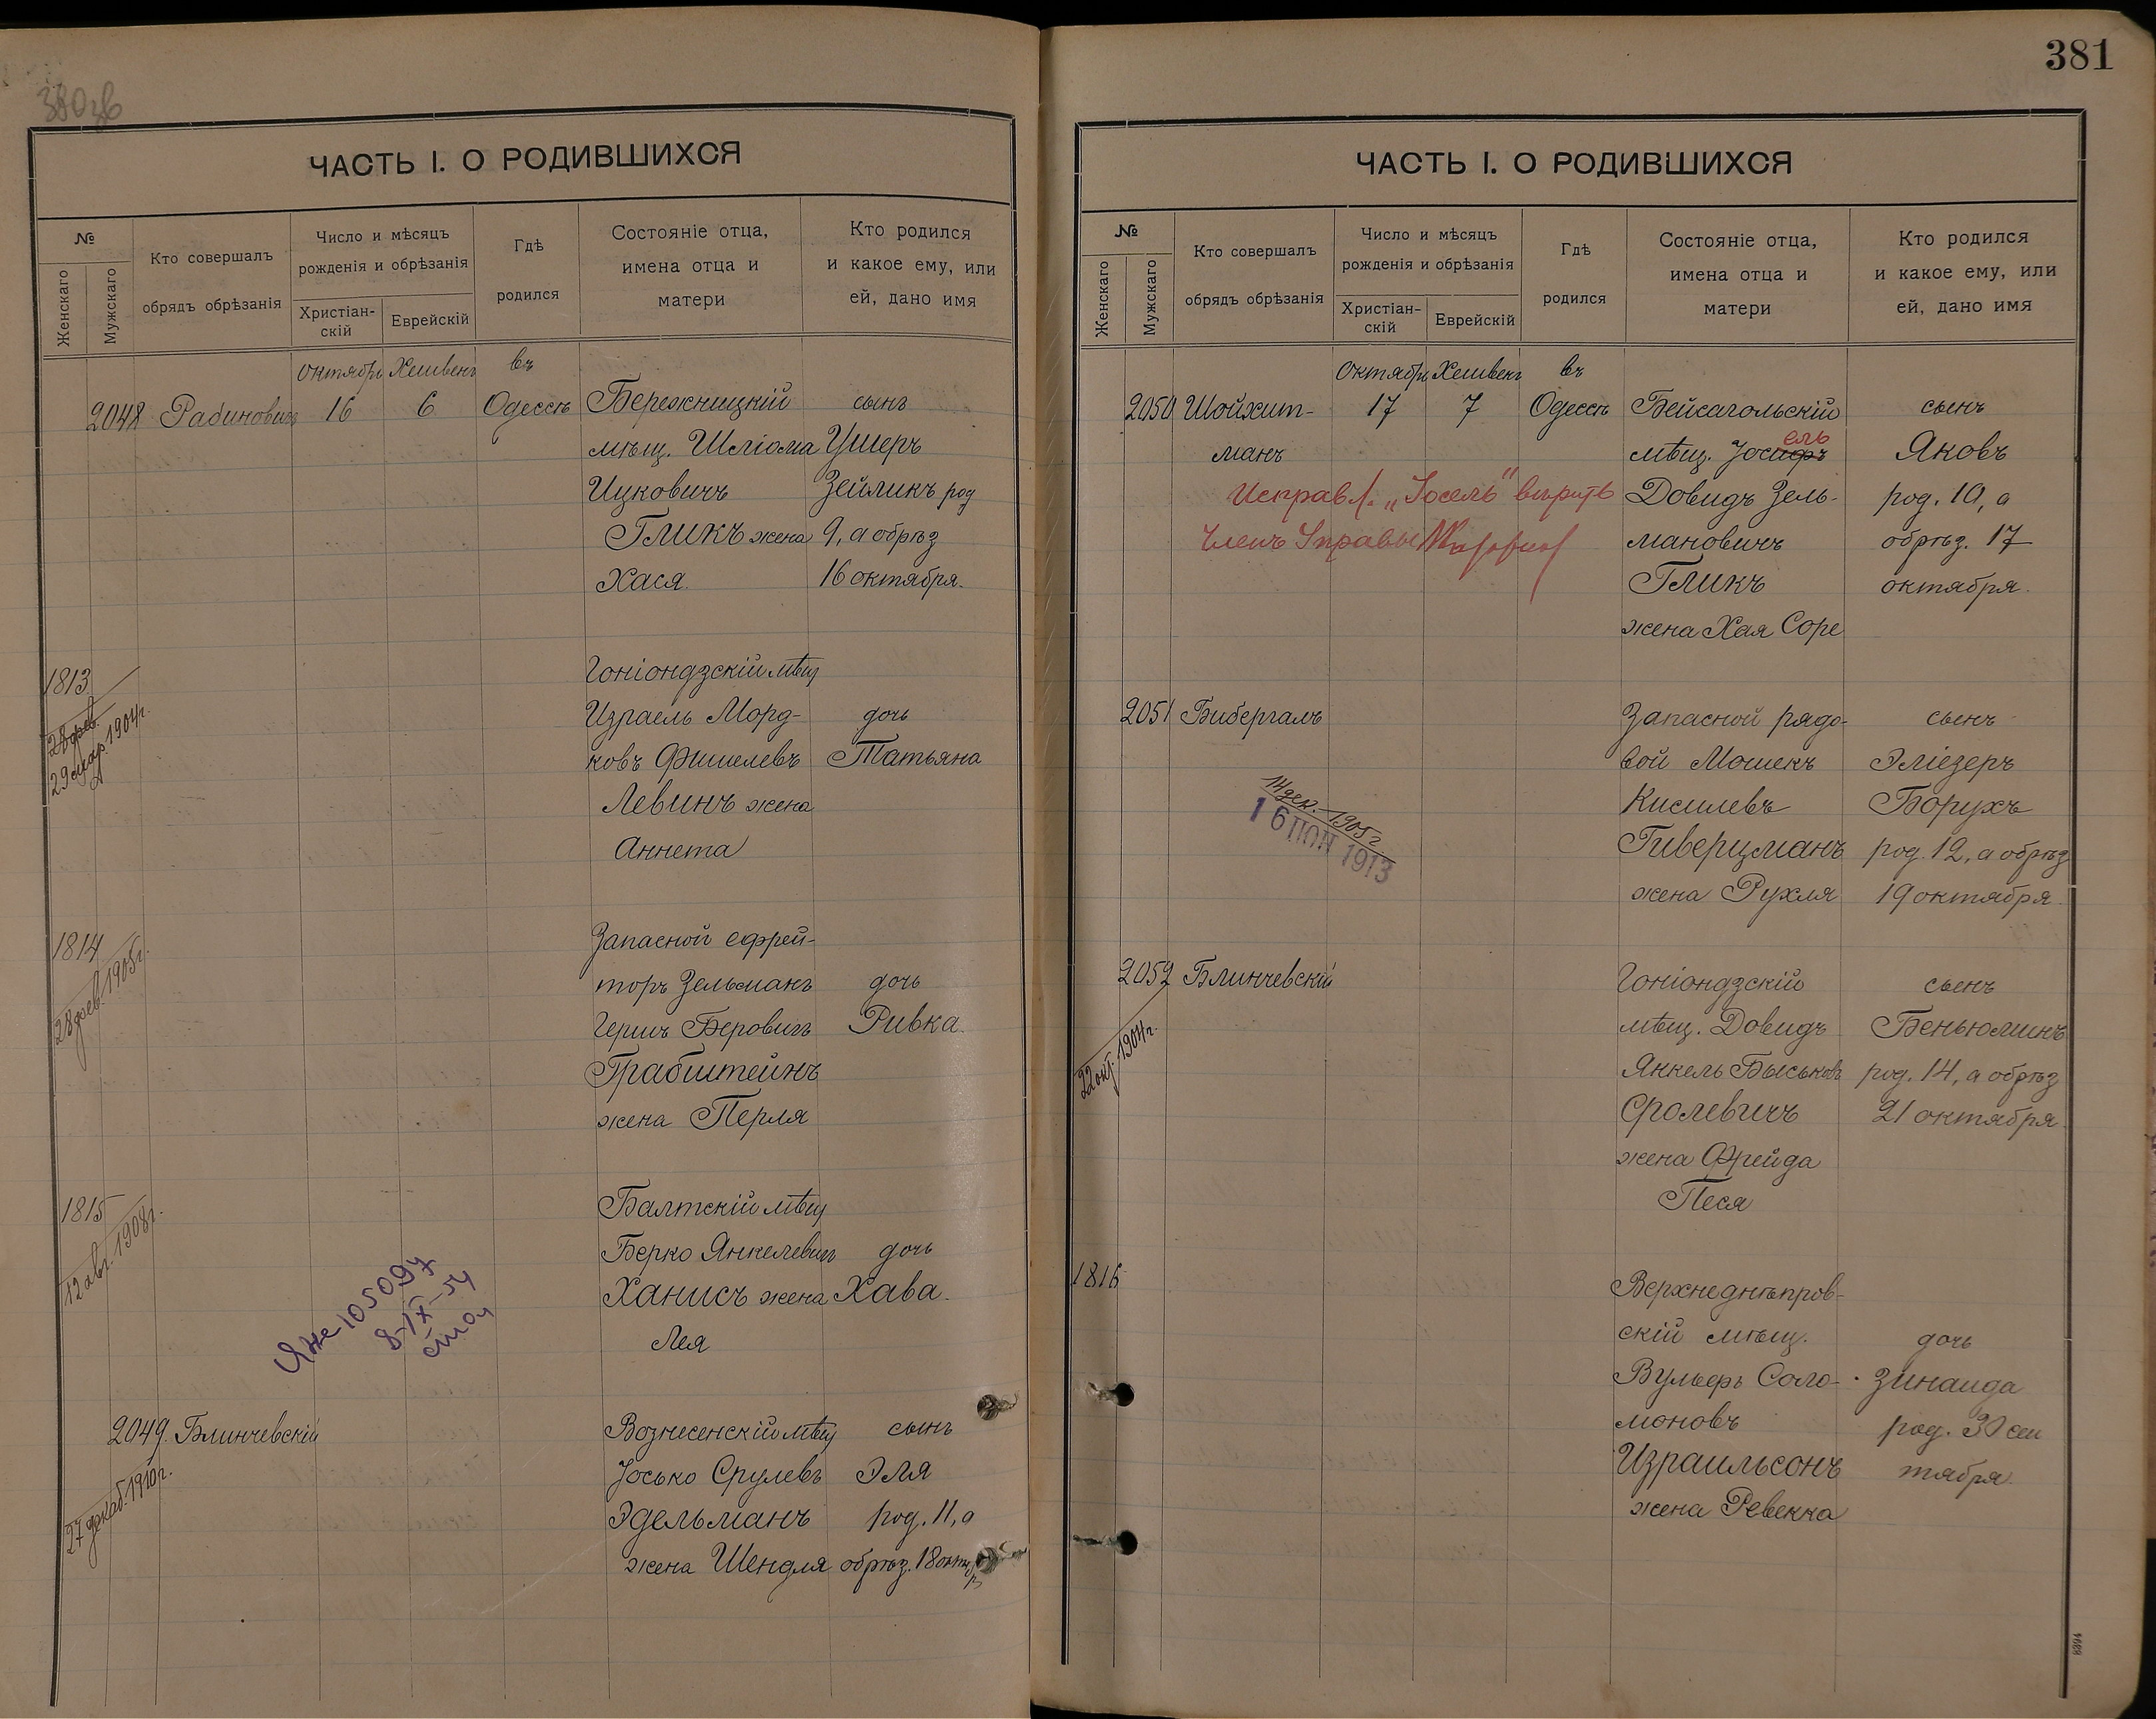 380зв
ЧАСТЬ I. О РОДИВШИХСЯ
№
Женскаго
Мужскаго
Кто совершалъ
обрядъ обрѣзанія
Число и мѣсяцъ
рожденія и обрѣзанія
Христіан-
скій
Еврейскій
Гдѣ
родился
Состояніе отца,
имена отца и
матери
Кто родился
и какое ему, или
ей, дано имя
Октябрь Хешвенъ въ
2048 Рабиновичъ 16 6 Одессѣ Бережницкій сынъ
мѣщ. Шліома Ушеръ
Ицковичъ Зейликъ род
Гликъ жена 9, а обрѣз
Хася 16 октября.
1813
28 фев.
29 мар 1904г.
Гоніондзскій мѣщ
Израель Морд- дочь
ковъ Фишелевъ Татьяна
Левинъ жена
Аннета
1814
28 фев. 1905г.
Запасной ефрей-
торъ Зельманъ дочь
Гершъ Беровичъ Ривка
Грабштейнъ
жена Перля
1815
12 авг. 1908г.
Балтскій мѣщ
Берко Янкелевичъ дочь
Ханисъ жена Хава.
Лея
ЯЖе 105097
8-IX-54
2049. Блинчевскій Вознесенскій мѣщ сынъ
27 декаб. 1910г.
Іосько Срулевъ Эля
Эдельманъ род. 11, а
жена Шендля обрѣз. 18 октяб
381
ЧАСТЬ I. О РОДИВШИХСЯ
№
Женскаго
Мужскаго
Кто совершалъ
обрядъ обрѣзанія
Число и мѣсяцъ
рожденія и обрѣзанія
Христіан-
скій
Еврейскій
Гдѣ
родился
Состояніе отца,
имена отца и
матери
Кто родился
и какое ему, или
ей, дано имя
Октябрь Хешвенъ въ
2050 Шойхит- 17 7 Одессѣ Бейсагольскій сынъ
ель
манъ мѣщ. Іосифъ Яковъ
Исправл. „Іосель" вѣрить Довидъ Зель- род. 10, а
Членъ Управы мановичъ обрѣз. 17
Гликъ октября.
жена Хая Соре
2051 Бибергалъ Запасной рядо- сынъ
вой Мошекъ Эліезеръ
14 дек. 1905г
16 ІЮН 1913
Кисилевъ Борухъ
Гиверцманъ род. 12, а обрѣз.
жена Рухля 19 октября.
2052 Блинчевскій Гоніондзскій сынъ
22 окт. 1904г.
мѣщ. Довидъ Беньюминъ
Янкель Быськовъ род. 14, а обрѣз
Сролевичъ 21 октября.
жена Фрейда
Песя
1816 Верхнеднѣпров-
скій мѣщ. дочь
Вульфъ Соло- Зинаида
моновъ род. 30 сен
Израильсонъ тября.
жена Ревекка